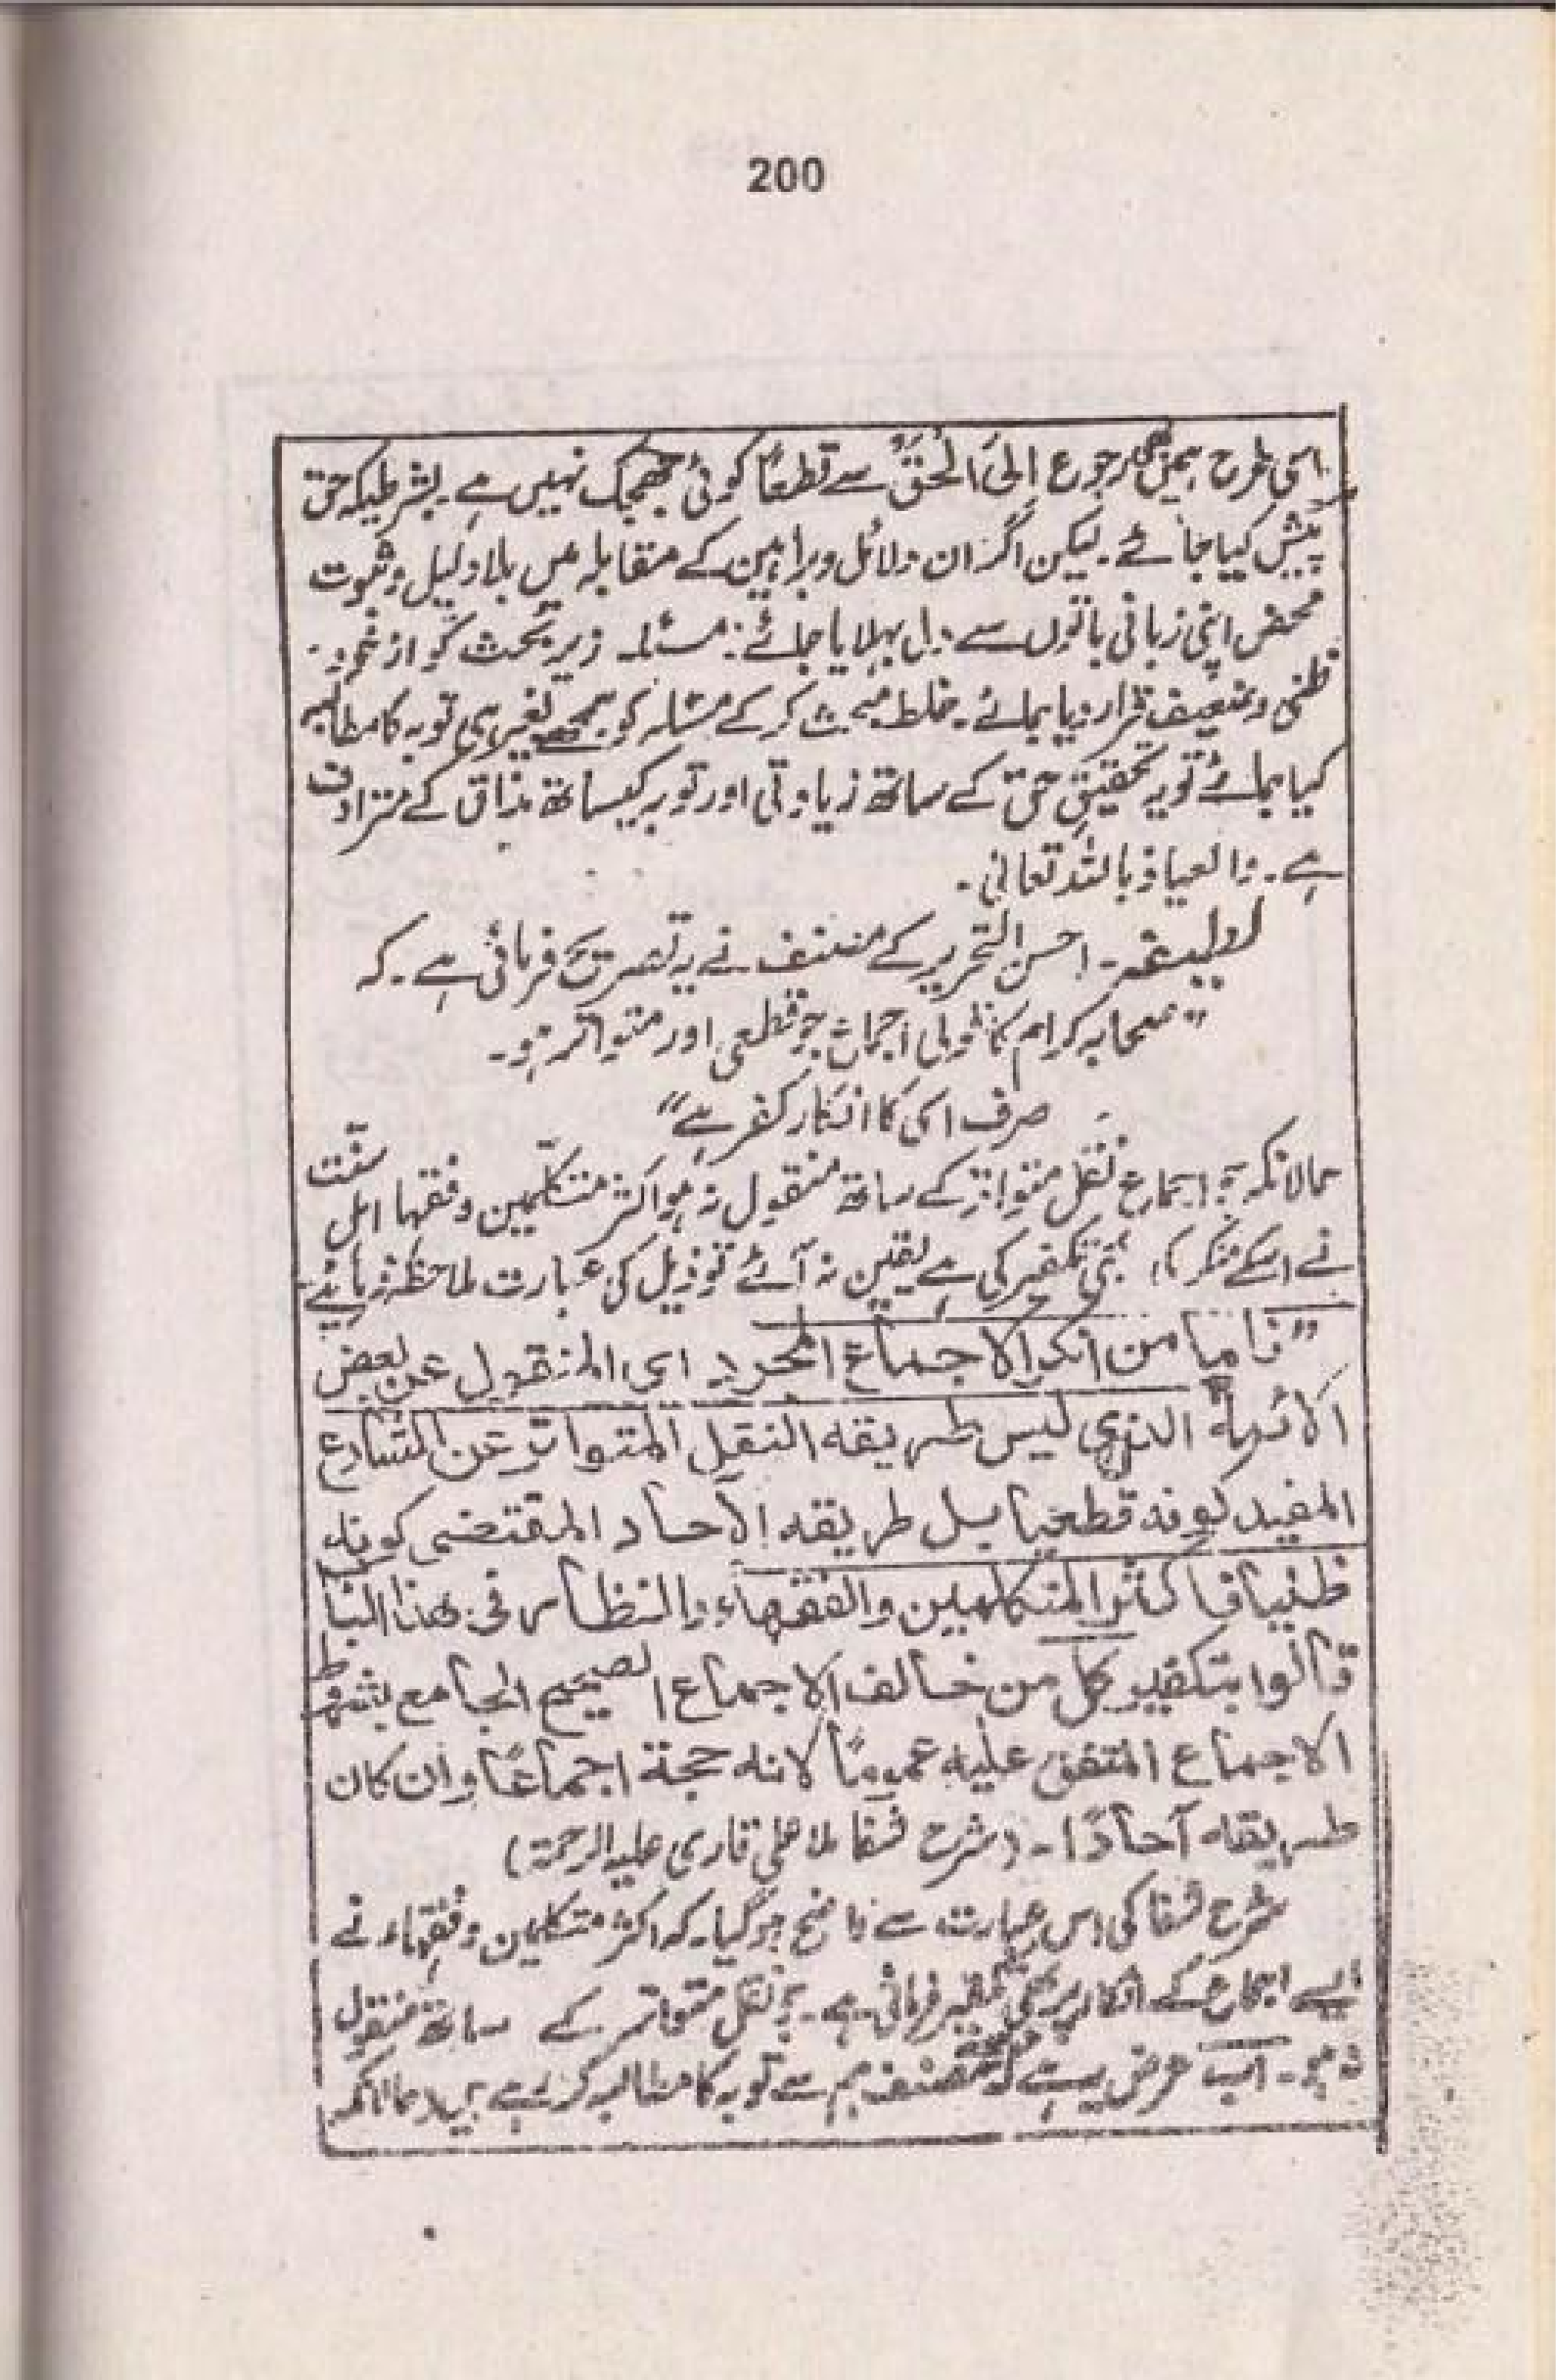 200
اسی طرح ہمیں بھی رجوع اِلیَ الْحَقّ سے قطعاً کوئی جھجک نہیں ہے۔ بشرطیکہ حق
پیش کیا جائے۔ لیکن اگر ان دلائل و براہین کے مقابلہ میں بلا دلیل و ثبوت
محض اپنی زبانی باتوں سے دل بہلایا جائے۔ مسئلہ زیر بحث کو از خود
ظنی و ضعیف قرار دیا جائے۔ خلط مبحث کر کے مسئلہ کو سمجھے بغیر ہی توبہ کا مطالبہ
کیا جائے تو یہ تحقیقِ حق کے ساتھ زیادتی اور توبہ کیساتھ مذاق کے مترادف
ہے۔ والعیاذ باللہ تعالیٰ۔
لطیفہ۔ احسن التحریر کے مصنف نے یہ تصریح فرمائی ہے۔ کہ
"صحابہ کرام کا قولی اجماع جو قطعی اور متواتر ہو۔
صرف اسی کا انکار کفر ہے"
حالانکہ جو اجماع نقل متواتر کے ساتھ منقول نہ ہو اکثر متکلمین و فقہا اہل سنّت
نے اسکے منکر کی بھی تکفیر کی ہے یقین نہ آئے تو ذیل کی عبارت ملاحظہ فرمائیے
"فاما من انکر الاجماع المجرد ای المنقول عن بعض
الائمۃ الذی لیس طریقہ النقل المتواتر عن الشارع
المفید کونہ قطعیا بل طریقہ الآحاد المقتضی کونہ
ظنیا فاکثر المتکلمین والفقھاء والنظار فی ھذا الباب
قالوا بتکفیر کل من خالف الاجماع الصحیح الجامع بشروط
الاجماع المتفق علیہ عموماً لانہ حجة اجماعًا وان کان
طریقہ آحادًا۔ (شرح شفا ملا علی قاری علیہ الرحمۃ)
شرح شفا کی اس عبارت سے واضح ہوگیا۔ کہ اکثر متکلمین و فقہاء نے
ایسے اجماع کے انکار پر بھی تکفیر فرمائی ہے۔ جو نقل متواتر کے ساتھ منقول
نہ ہو۔ اب عرض یہ ہے کہ مصنف ہم سے توبہ کا مطالبہ کر رہے ہیں۔ حالانکہ